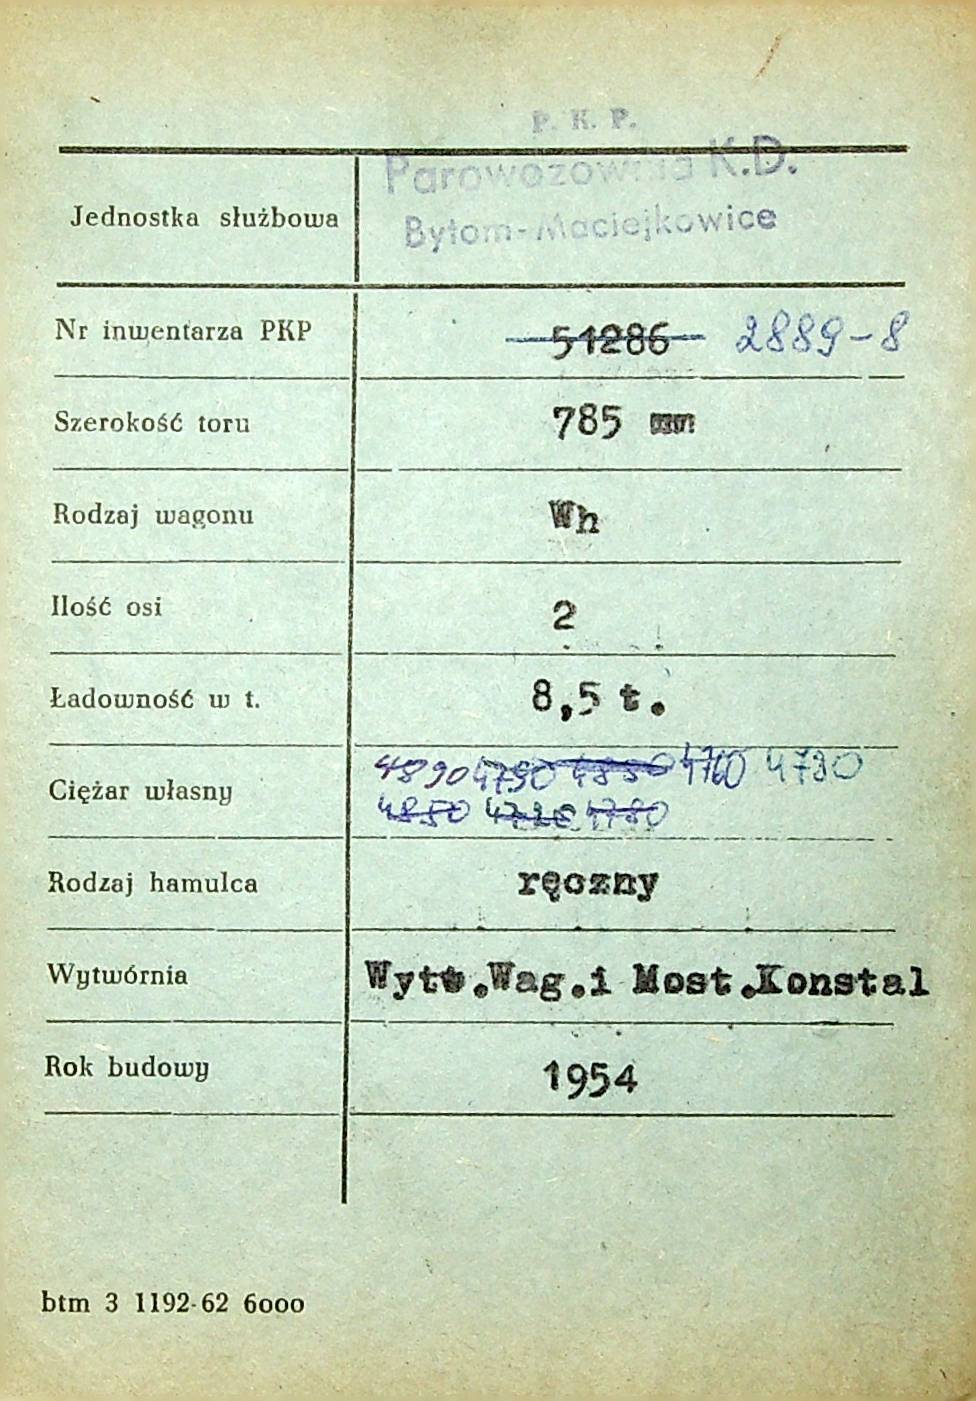 P. K. P.
Parowozownia K.D.
Bytom-Maciejkowice
Jednostka służbowa
Nr inwentarza PKP 51286 2889-8
Szerokość toru 785 mm
Rodzaj wagonu Wh
Ilość osi 2
Ładowność w t. 8,5 t.
Ciężar własny 4890 4790 4850 4760 4730
4850 4780
Rodzaj hamulca ręczny
Wytwórnia Wytw.Wag.i Most.Konstal
Rok budowy 1954
btm 3 1192-62 6000